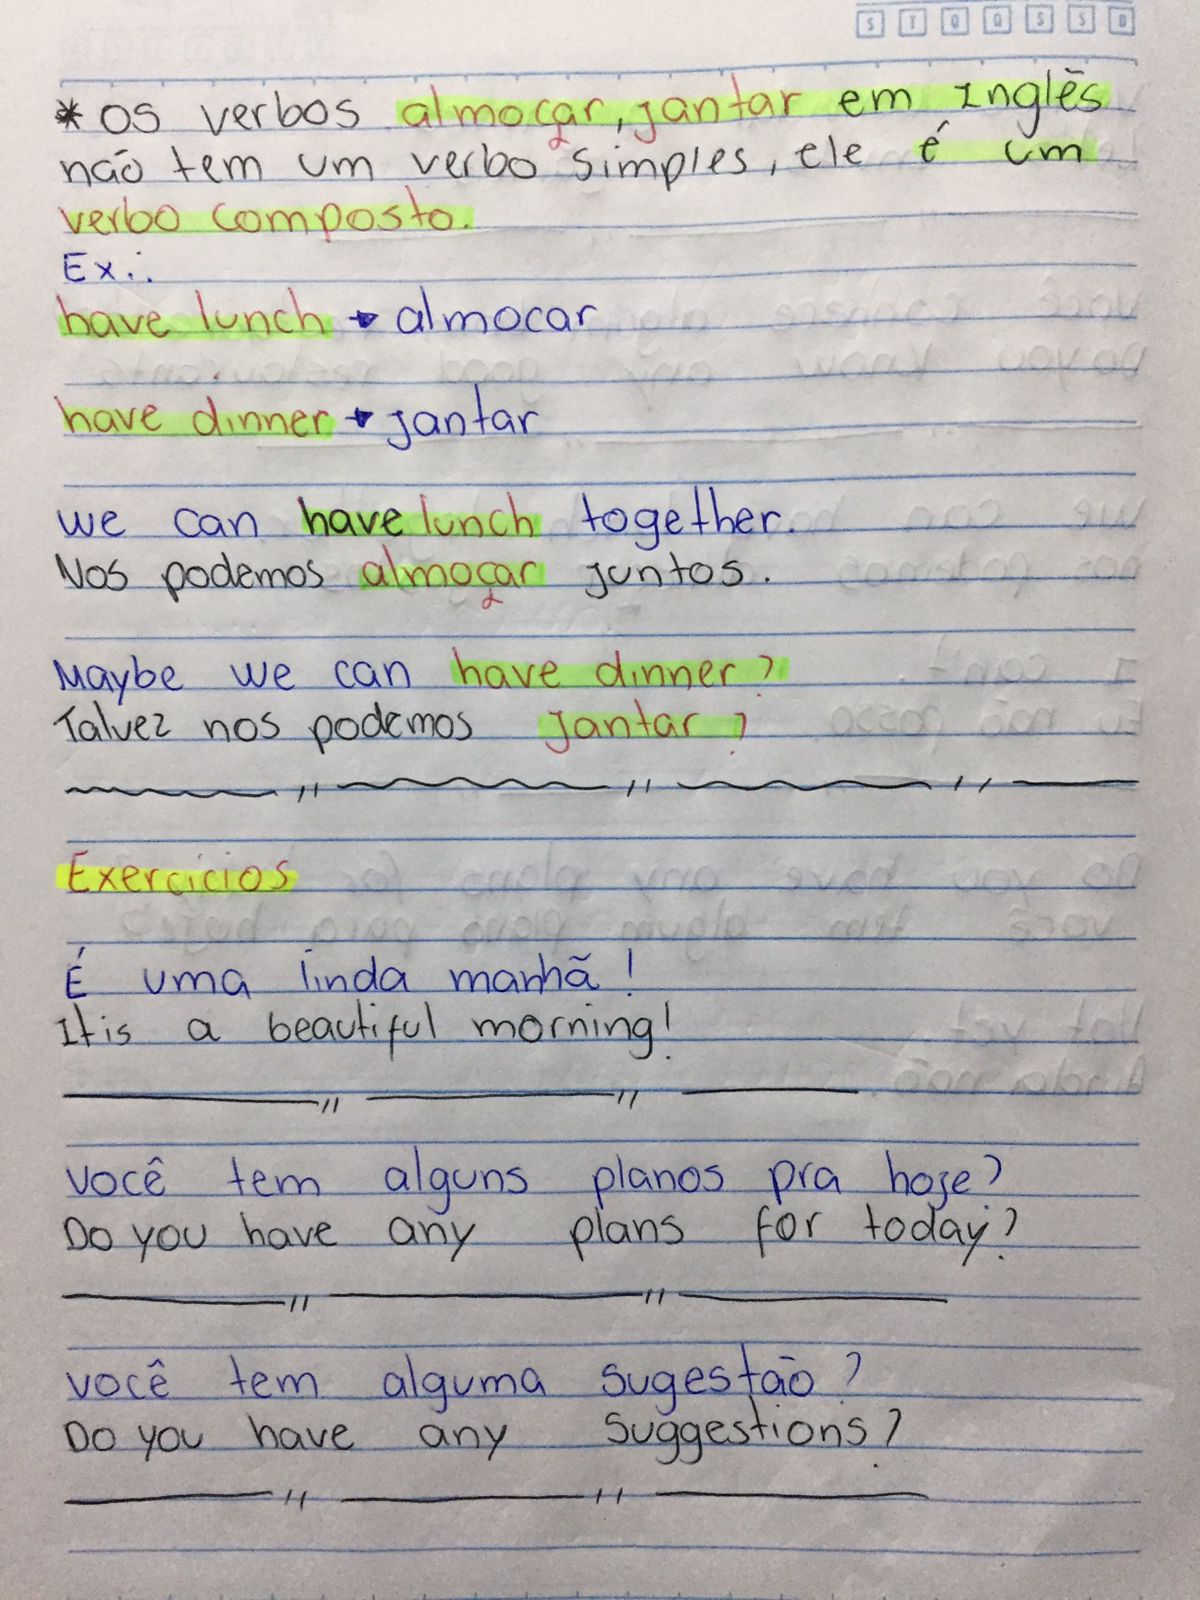 S T Q Q S S D
* Os verbos almoçar, jantar em Inglês
não tem um verbo simples, ele é um
verbo composto.
Ex.:
have lunch → almocar
have dinner → jantar
we can have lunch together.
Nos podemos almoçar juntos.
Maybe we can have dinner?
Talvez nos podemos jantar?
Exercicios
É uma linda manhã!
It is a beautiful morning!
você tem alguns planos pra hoje?
Do you have any plans for today?
você tem alguma sugestão?
Do you have any suggestions?